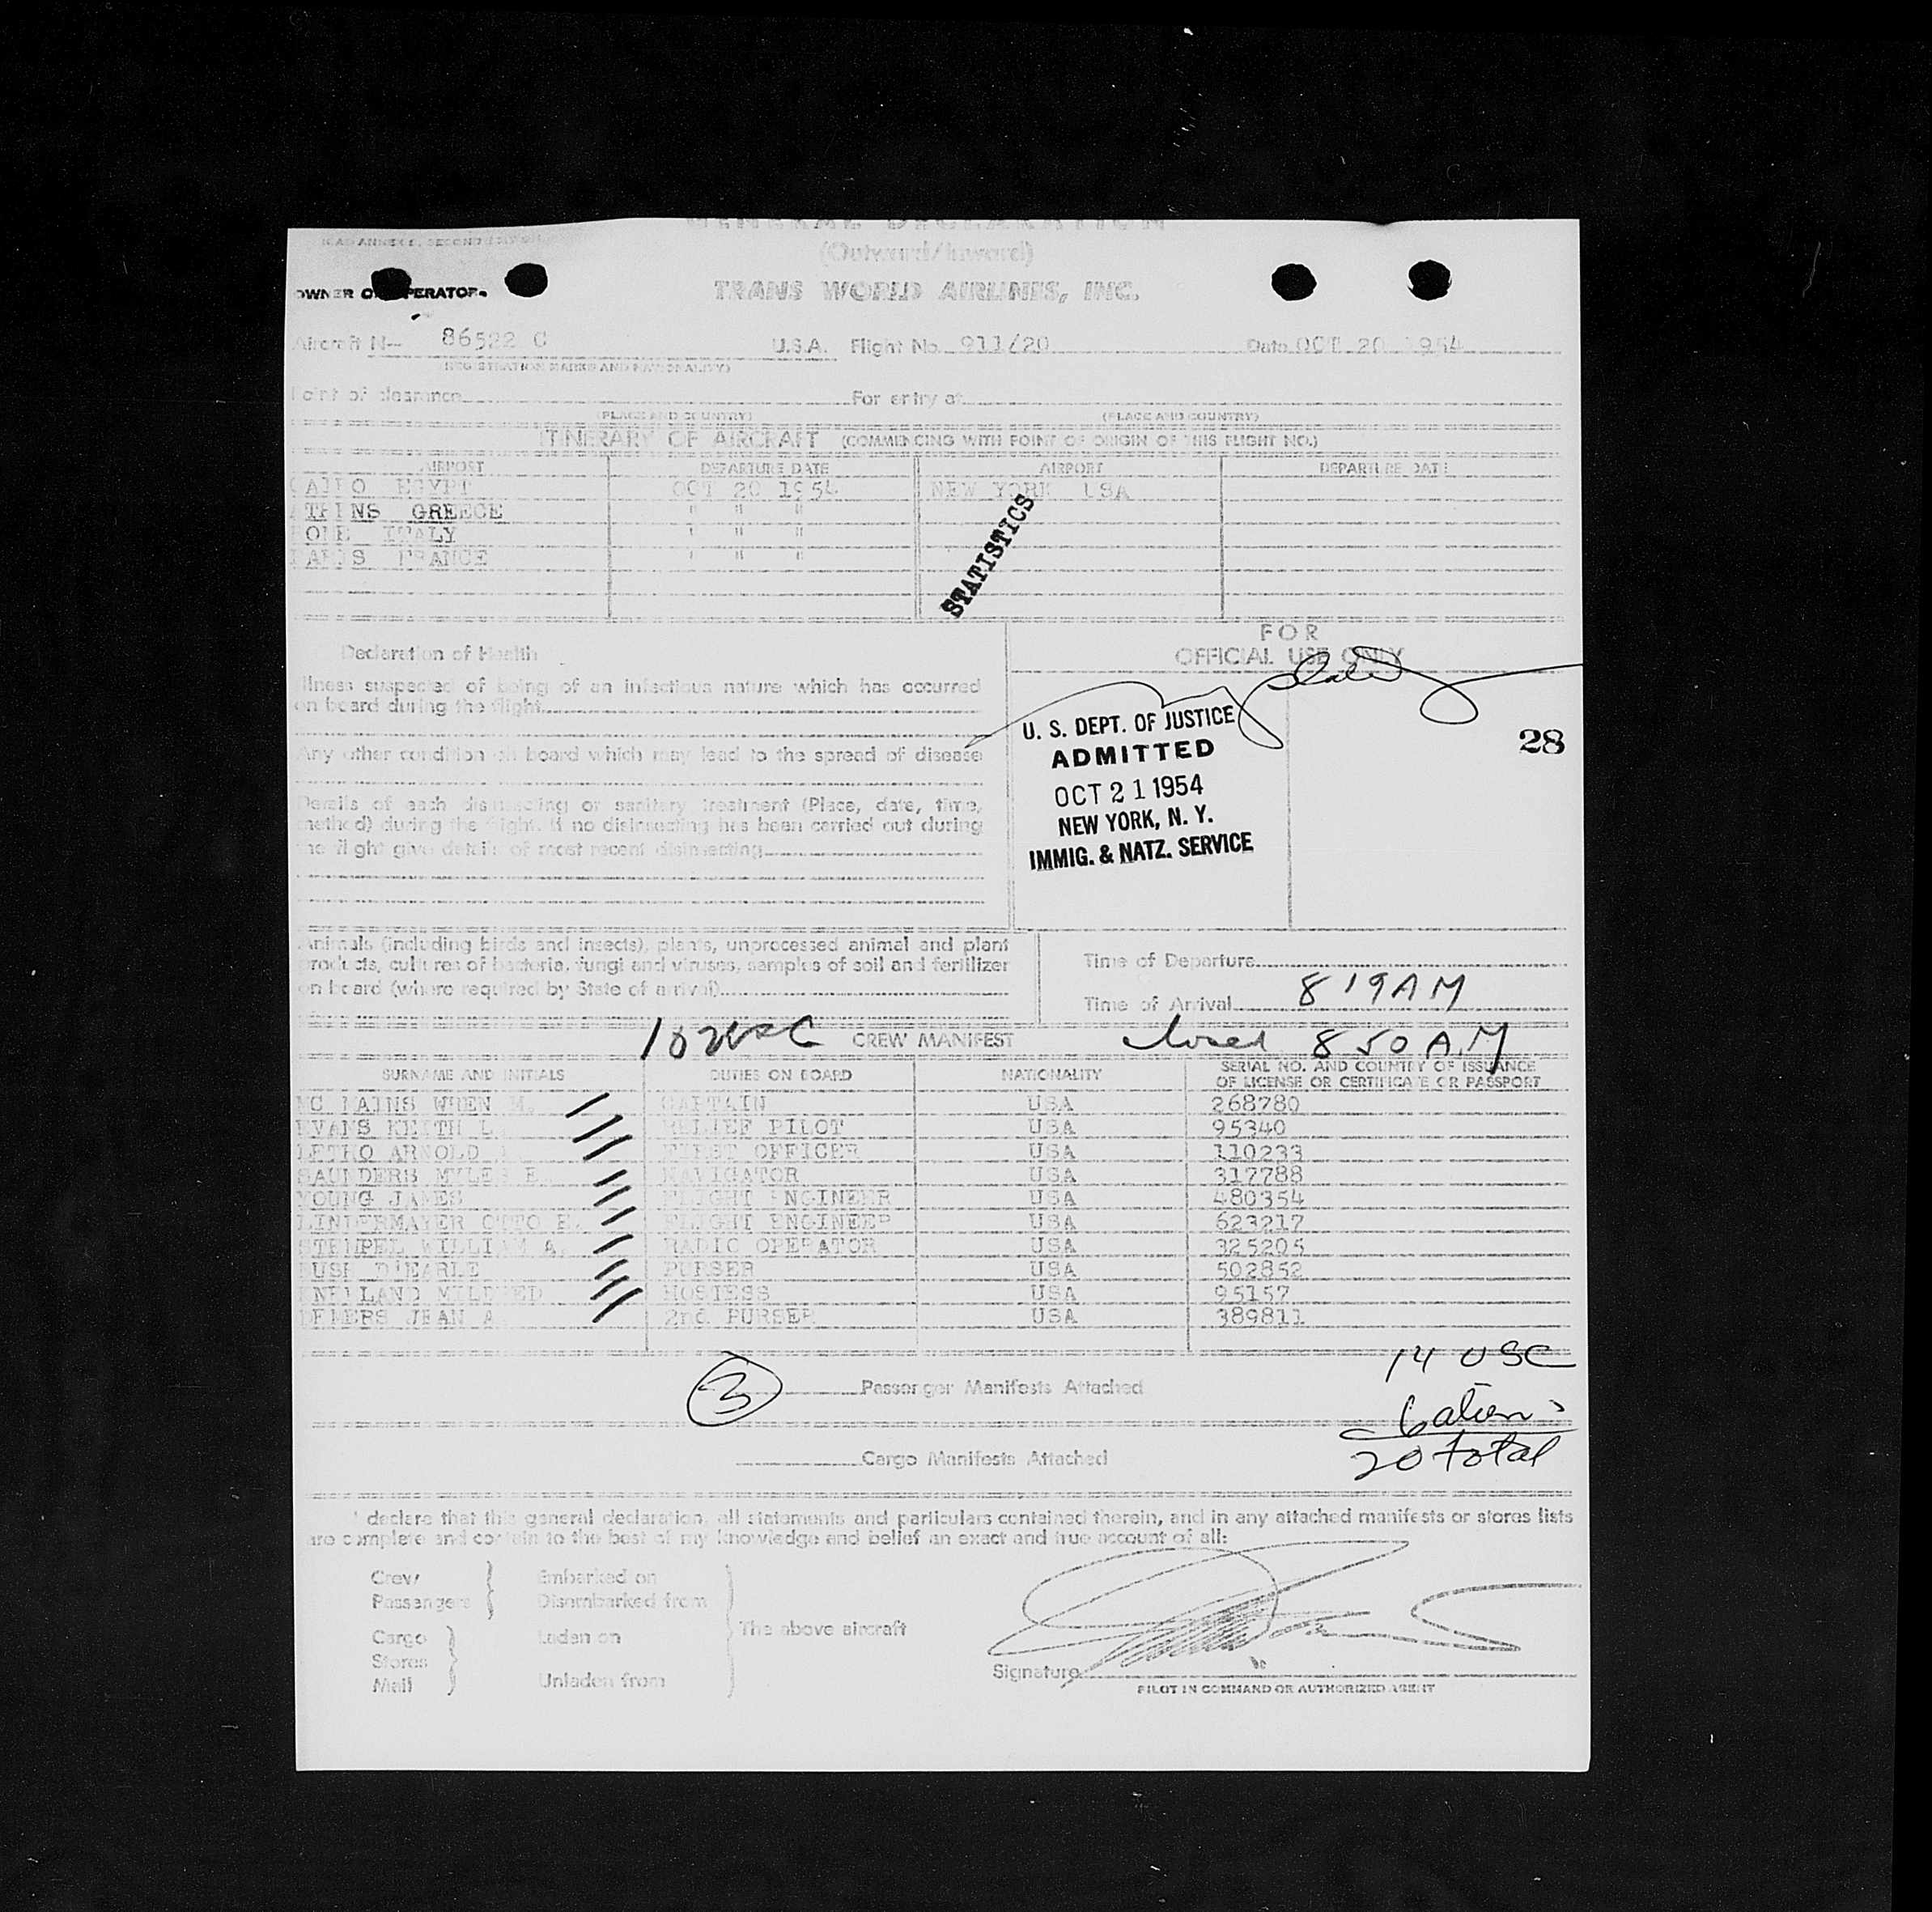 GENERAL DECLARATION
(Outward/Inward)
OWNER OR OPERATOR
TRANS WORLD AIRLINES, INC.
Aircraft N— 86522 C U.S.A. Flight No. 911/20 Date OCT 20 1954
(REGISTRATION MARKS AND NATIONALITY)
Point of clearance For entry at
(PLACE AND COUNTRY) (PLACE AND COUNTRY)
ITINERARY OF AIRCRAFT (COMMENCING WITH POINT OF ORIGIN OF THIS FLIGHT NO.)
AIRPORT DEPARTURE DATE AIRPORT DEPARTURE DATE
CAIRO EGYPT OCT 20 1954 NEW YORK USA
ATHENS GREECE " " "
ROME ITALY " " "
PARIS FRANCE " " "
STATISTICS
FOR
OFFICIAL USE ONLY
Declaration of Health
Illness suspected of being of an infectious nature which has occurred
on board during the flight
Any other condition on board which may lead to the spread of disease
Details of each disinsecting or sanitary treatment (Place, date, time,
method) during the flight. If no disinsecting has been carried out during
the flight give details of most recent disinsecting
U. S. DEPT. OF JUSTICE
ADMITTED
OCT 21 1954
NEW YORK, N. Y.
IMMIG. & NATZ. SERVICE
28
Animals (including birds and insects), plants, unprocessed animal and plant
products, cultures of bacteria, fungi and viruses, samples of soil and fertilizer
on board (where required by State of arrival)
Time of Departure
Time of Arrival 819AM
10 USC CREW MANIFEST closed 850 A.M
SURNAME AND INITIALS DUTIES ON BOARD NATIONALITY SERIAL NO. AND COUNTRY OF ISSUANCE
OF LICENSE OR CERTIFICATE OR PASSPORT
WREN M. CAPTAIN USA 268780
EVANS KEITH L RELIEF PILOT USA 95340
ARNOLD FIRST OFFICER USA 110233
SAUNDERS MYLES E. NAVIGATOR USA 317788
YOUNG JAMES FLIGHT ENGINEER USA 480354
LINDERMAYER OTTO H. FLIGHT ENGINEER USA 623217
STEMPEL WILLIAM A. RADIO OPERATOR USA 325205
D'EARLE PURSER USA 502852
KNEELAND MILDRED HOSTESS USA 95157
DEMERS JEAN A 2nd PURSER USA 389811
14 USC
3 Passenger Manifests Attached
6 aliens
20 total
Cargo Manifests Attached
I declare that this general declaration, all statements and particulars contained therein, and in any attached manifests or stores lists
are complete and contain to the best of my knowledge and belief an exact and true account of all:
Crew Embarked on
Passengers Disembarked from
The above aircraft
Cargo Laden on
Stores
Mail Unladen from
Signature
PILOT IN COMMAND OR AUTHORIZED AGENT